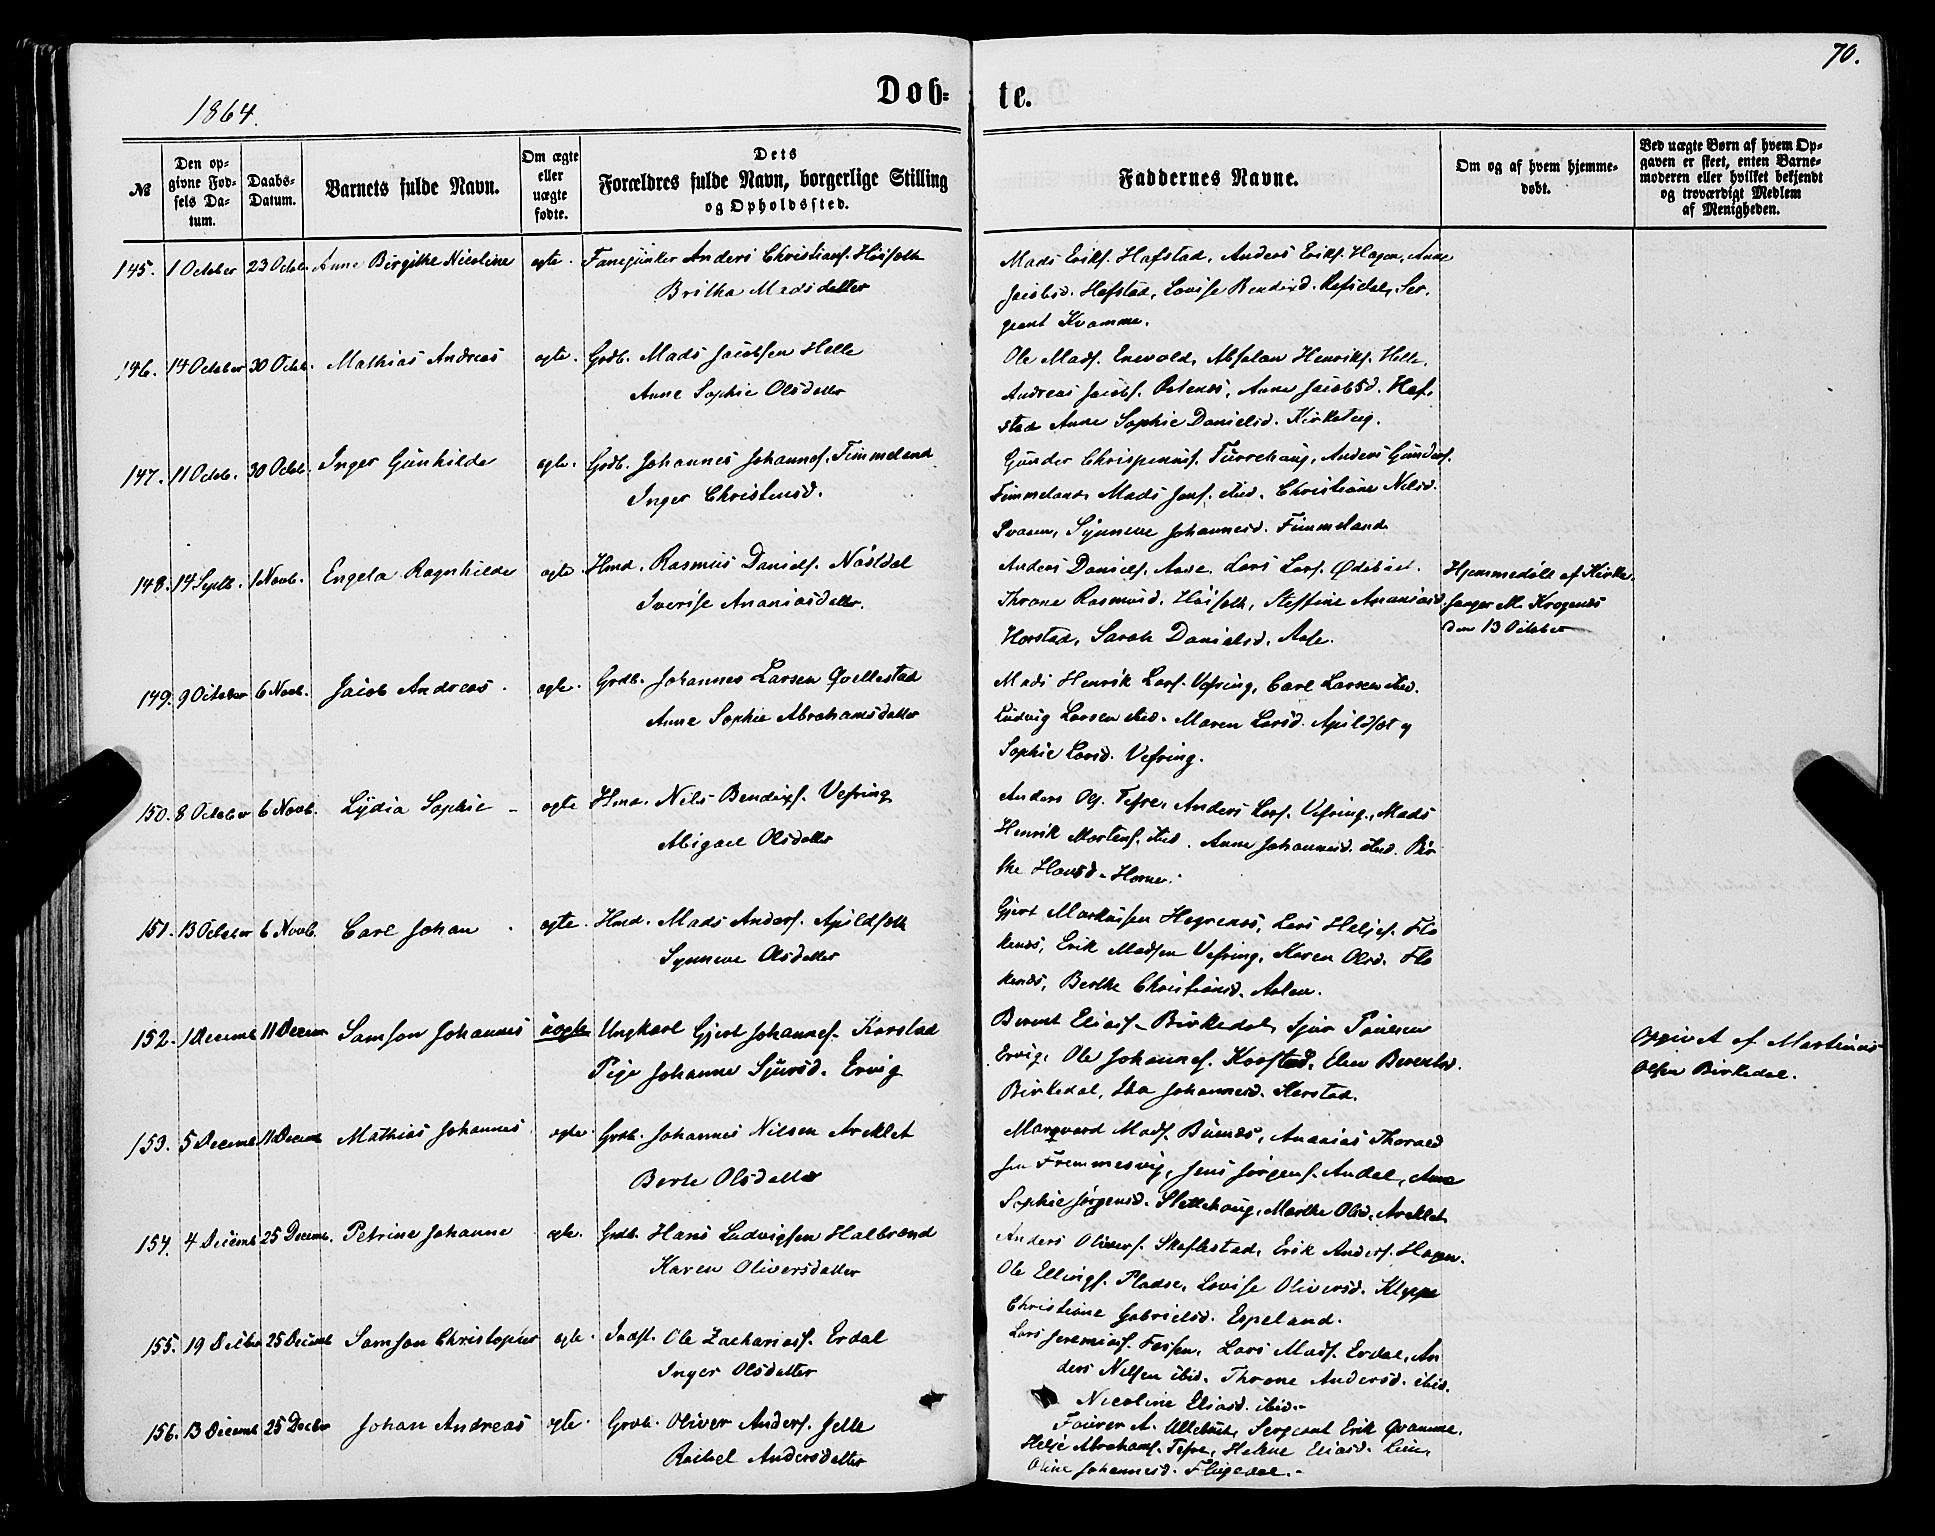 70.
1864.
Døb-
te.
№
Den op-
givne Fød-
sels Da-
tum.
Daabs-
Datum.
Barnets fulde Navn.
Om ægte
eller
uægte
fødte.
Dets
Forældres fulde Navn, borgerlige Stilling
og Opholdssted.
Faddernes Navne.
Om og af hvem hjemme-
døbt.
Ved uægte Børn af hvem Op-
gaven er skeet, enten Barne-
moderen eller hvilket bekjendt
og troværdigt Medlem
af Menigheden.
145. 1 October 23 Octbr. Anne Birgithe Nicoline ægte. Fanejunker Anders Christians.
Britha Madsdatter
Mads Eriks. Hafstad, Anders Eriks. Hagen, Anne
Jacobsd. Hafstad, Lovise Bendixd. Refsdal, Ser-
geant Kvamme.
146. 14 October 30 Octb. Mathias Andreas ægte. Grdb. Mads Jacobsen Helle
Anne Sophie Olsdatter
Ole Mads. Enevold, Absalon Henriks. Helle,
Andreas Jacobs. Anne Jacobsd. Haf-
stad Anne Sophie Danielsd. Kirketeig.
147. 11 Octob. 30 Octb. Inger Gunhilde ægte. Grdb. Johannes Johannes. Timmeland
Inger Christensd.
Gunder Anders Gunders.
Timmeland, Mads Jens. ibid. Christine Nilsd.
Svaen, Synneve Johannesd. Timmeland
148. 14 Septb. 1 Novb. Engela Ragnhilde ægte Hmd. Rasmus Daniels. Nåstdal
Iverise Ananiasdatter.
Anders Daniels. Aase. Lars Lars.
Throne Rasmusd. Steffine Ananiasd.
Horstad, Sarah Danielsd. Aase.
Hjemmedøbt af Kirke-
sanger M. Krogenæs
den 13 October
149. 9 October 6 Novb. Jacob Andreas. ægte. Grdb. Johannes Larsen Qvellestad
Anne Sophie Abrahamsdatter
Mads Henrik Lars. Vefring, Carl Larsen ibid.
Ludvig Larsen ibid. Maren Larsd. Apildsæt og
Sophie Larsd. Vefring.
150. 8 October 6 Novb. Lydia Sophie - ægte Hmd. Nils Bendixs. Vefring
Abigael Olsdatter
Anders Ols. Tefre, Anders Lars. Vefring, Mads
Henrik Mortens. ibid. Anne Johannesd. ibid. Bir-
the Hansd. Horne.
151. 13 October 6 Novb. Carl Johan. ægte. Hmd. Mads Anders. Apildsæth
Synneve Olsdatter
Gjert Markussen Hegrenæs, Lars Heljes. Flo-
kenæs, Erik Madsen Vefring, Karen Olsd. Flo-
kenæs, Berthe Christiansd. Aalen.
152. 1 Decemb 11 Decem Samson Johannes uægte Ungkarl Gjert Johannes. Karstad
Pige Johanne Sjursd. Ervig
Berent Elias. Birkedal, Sjur Paulsen
Ervig, Ole Johannes. Karstad, Elen Berentsd.
Birkedal, Johannesd. Karstad.
Opgivet af Martinus
Olsen Birkedal.
153. 5 Decemb 11 Decemb Mathias Johannes ægte. Grdb. Johannes Nilsen Arklet
Berte Olsdatter
Marqvard Mads. Buenæs, Ananias Thorald
sen Fremmesvig, Jens Jørgens. Andal, Anne
Sophie Jørgensd. Slettehaug, Marthe Olsd. Arklet
154. 4 Decemb 25 Decemb. Petrine Johanne ægte. Grdb. Hans Ludvigsen Halbrænd
Karen Oliversdatter
Anders Olivers. Skaftestad, Erik Anders. Hagen.
Ole Ellings. Pladse, Lovise Oliversd. Kleppe
Christiane Gabrielsd. Espeland.
155. 19 Decbr 25 Decemb Samson Christopher ægte. Indst. Ole Zacharias. Erdal
Inger Olsdatter
Lars Jeremias. Lars Mads. Erdal, An
ders Nilsen ibid. Throne Andersd. ibid.
Nicoline Eliasd. ibid.-
156. 13 Decemb 25 Decbr Johan Andreas ægte. Grdb. Oliver Anders. Jelle
Rachel Andersdatter
Fourer A. Sergeant Erik Qvamme.
Helje Abrahams. Tefre, Helene Eliasd.
Oline Johannesd. Flugedal.-